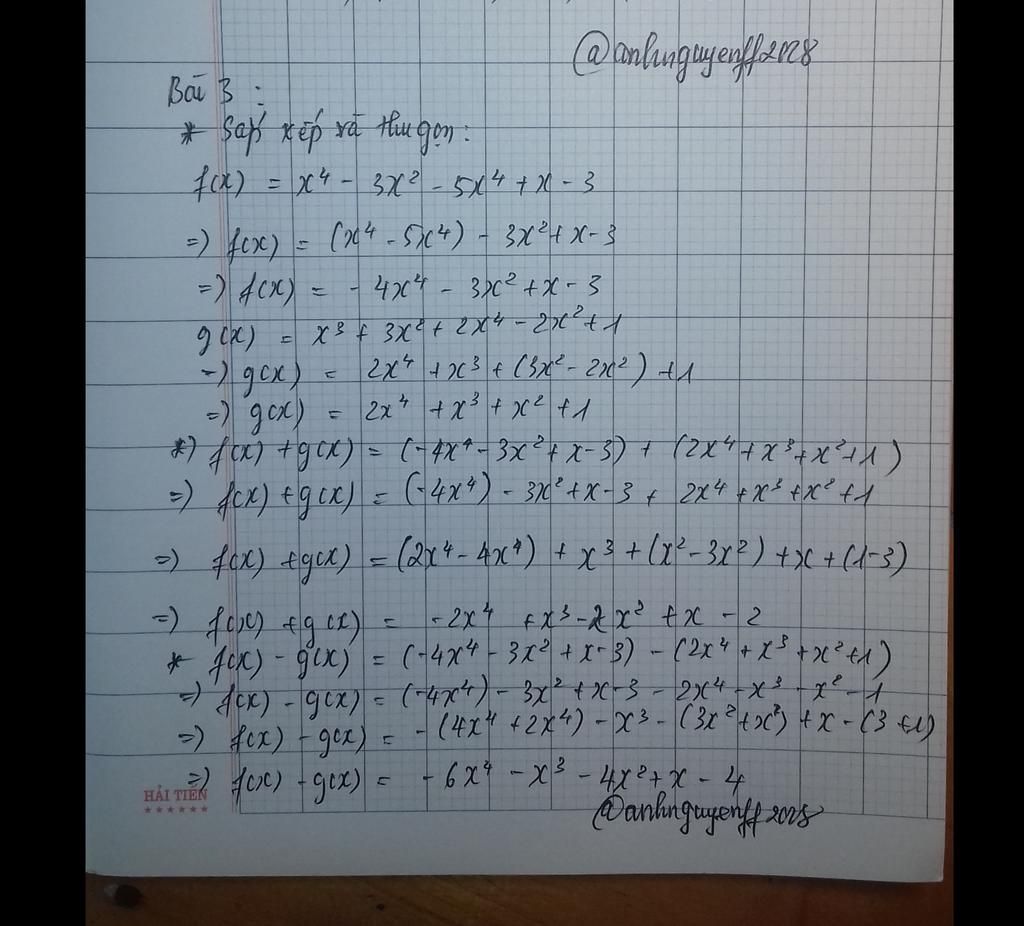 @anhnguyenff2028
Bài 3 :
* Sắp xếp và thu gọn :
f(x) = x⁴ - 3x² - 5x⁴ + x - 3
=) f(x) = (x⁴ - 5x⁴) - 3x² + x - 3
=) f(x) = - 4x⁴ - 3x² + x - 3
g(x) = x³ + 3x² + 2x⁴ - 2x² + 1
=) g(x) = 2x⁴ + x³ + (3x² - 2x²) + 1
=) g(x) = 2x⁴ + x³ + x² + 1
*) f(x) + g(x) = (-4x⁴ - 3x² + x - 3) + (2x⁴ + x³ + x² + 1)
=) f(x) + g(x) = (-4x⁴) - 3x² + x - 3 + 2x⁴ + x³ + x² + 1
=) f(x) + g(x) = (2x⁴ - 4x⁴) + x³ + (x² - 3x²) + x + (1-3)
=) f(x) + g(x) = -2x⁴ + x³ - 2x² + x - 2
* f(x) - g(x) = (-4x⁴ - 3x² + x - 3) - (2x⁴ + x³ + x² + 1)
=) f(x) - g(x) = (-4x⁴) - 3x² + x - 3 - 2x⁴ - x³ - x² - 1
=) f(x) - g(x) = - (4x⁴ + 2x⁴) - x³ - (3x² + x²) + x - (3 + 1)
=) f(x) - g(x) = - 6x⁴ - x³ - 4x² + x - 4
HẢI TIẾN
@anhnguyenff2028